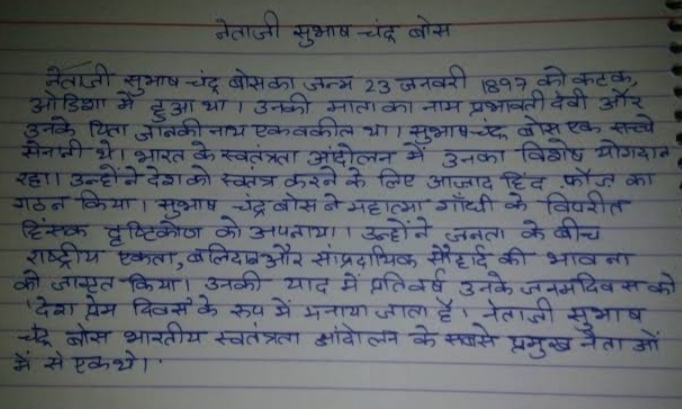 नेताजी सुभाष चंद्र बोस
नेताजी सुभाष चंद्र बोस का जन्म 23 जनवरी 1897 को कटक,
ओडिशा में हुआ था। उनकी माता का नाम प्रभावती देवी और
उनके पिता जानकी नाथ एक वकील था। सुभाष चंद्र बोस एक सच्चे
सेनानी थे। भारत के स्वतंत्रता आंदोलन में उनका विशेष योगदान
रहा। उन्होंने देश को स्वतंत्र करने के लिए आजाद हिंद फौज का
गठन किया। सुभाष चंद्र बोस ने महात्मा गाँधी के विपरीत
हिंसक दृष्टिकोण को अपनाया। उन्होंने जनता के बीच
राष्ट्रीय एकता, बलिदान और सांप्रदायिक सौहार्द की भावना
को जाग्रत किया। उनकी याद में प्रतिवर्ष उनके जनमदिवस को
'देश प्रेम दिवस' के रुप में मनाया जाता है। नेताजी सुभाष
चंद्र बोस भारतीय स्वतंत्रता आंदोलन के सबसे प्रमुख नेताओं
में से एक थे।